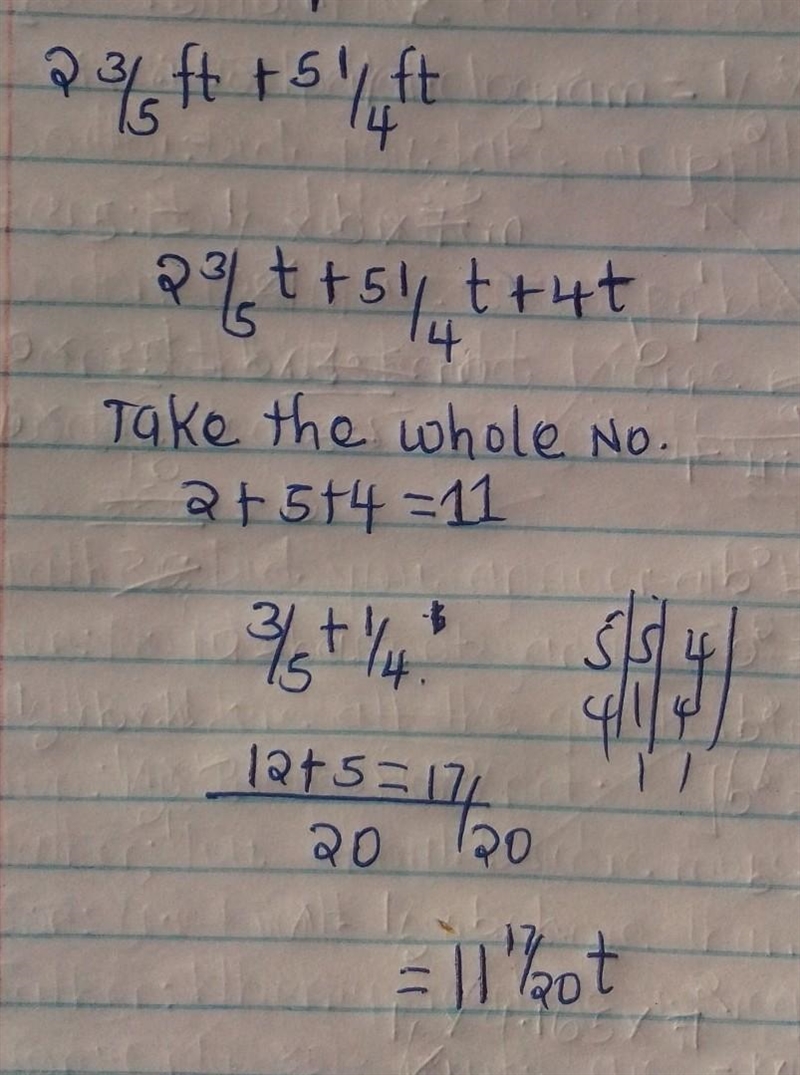 2 3/5 ft + 5 1/4 ft
2 3/5 t + 5 1/4 t + 4t
Take the whole No.
2 + 5 + 4 = 11
3/5 + 1/4.
5 | 5 4
4 | 1 4
1 1
12 + 5 = 17/20
20
= 11 17/20 t